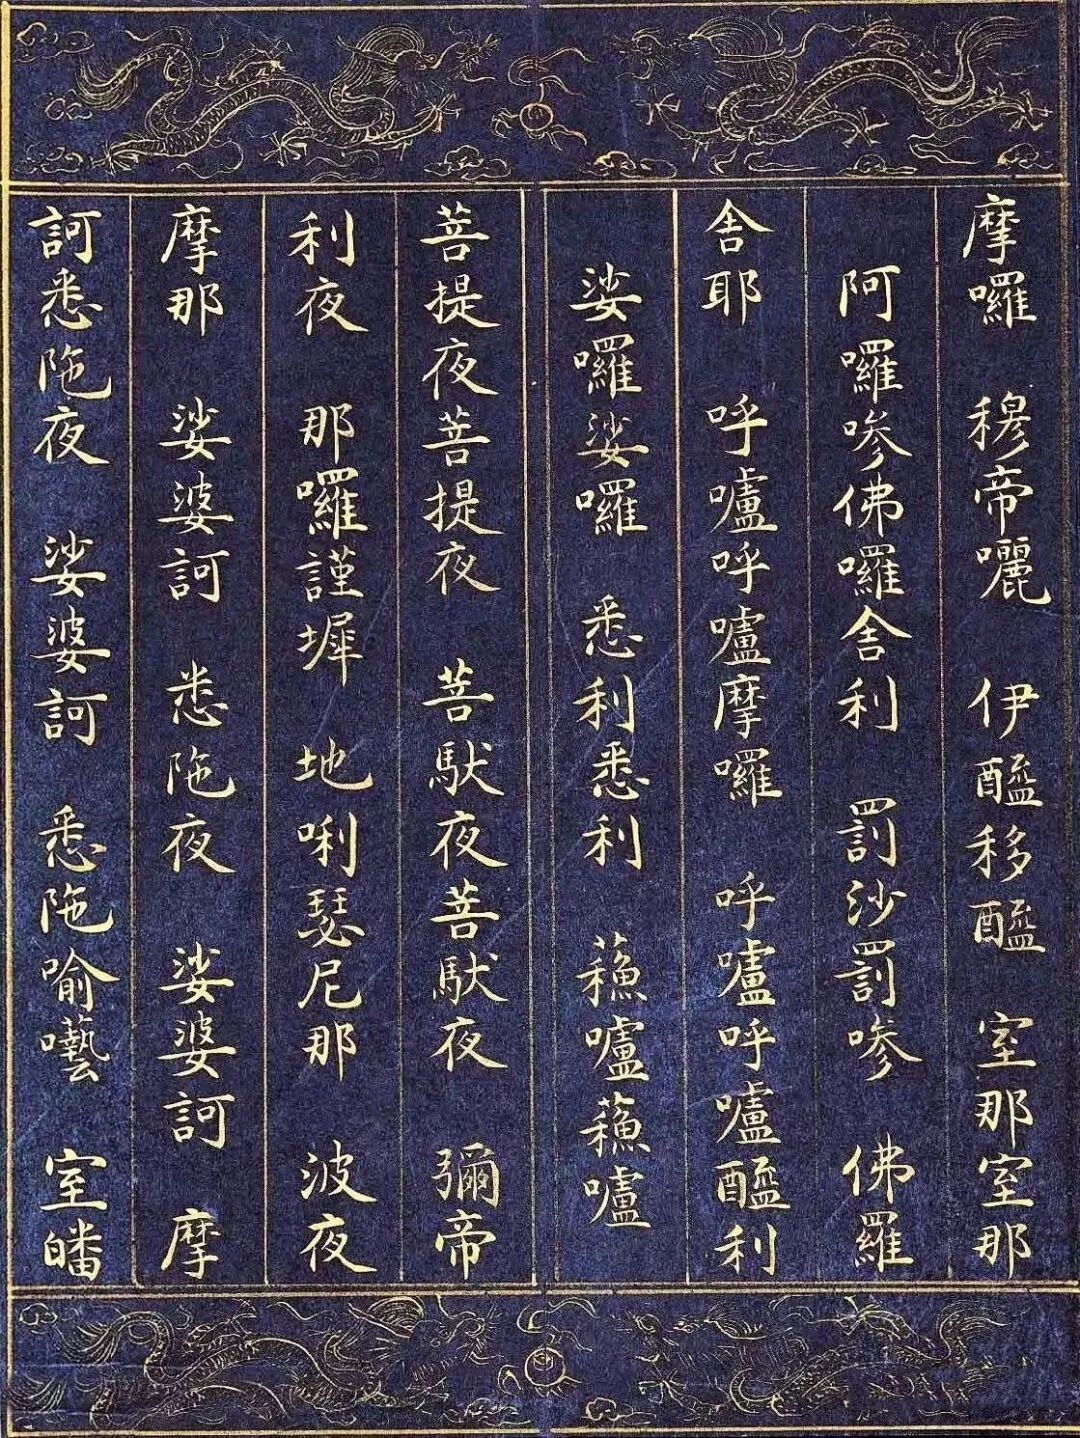 摩囉　穆帝囇　伊醯移醯　室那室那
阿囉嘇佛囉舍利　罰沙罰嘇　佛羅
舍耶　呼嚧呼嚧摩囉　呼嚧呼嚧醯利
娑囉娑囉　悉利悉利　蘓嚧蘓嚧
菩提夜菩提夜　菩馱夜菩馱夜　彌帝
利夜　那囉謹墀　地唎瑟尼那　波夜
摩那　娑婆訶　悉陁夜　娑婆訶　摩
訶悉陁夜　娑婆訶　悉陁喻囈　室皤